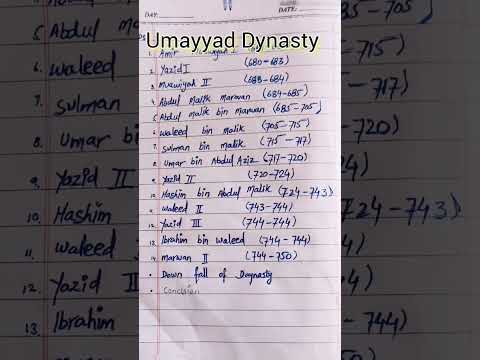 DAY:
DATE:
Umayyad Dynasty
1. Amir
2. Yazid I (680-683)
3. Muawiyah II (683-684)
4. Abdul Malik marwan (684-685)
5. Abdul Malik bin Marwan (685-705)
6. waleed bin malik (705-715)
7. Sulman bin malik (715-717)
8. Umar bin Abdul Aziz (717-720)
9. Yazid II (720-724)
10. Hashim bin Abdul Malik (724-743)
11. waleed II (743-744)
12. Yazid III (744-744)
13. Ibrahim bin waleed (744-744)
14. marwan II (744-750)
• Down fall of Daynasty
• Conclsion
5. Abdul M
6. waleed
7. Sulman
8. Umar b
9. Yazid II
10. Hashim
11. waleed
12. Yazid II
13. Ibrahim
-715)
-717)
-720)
724-743)
-744)